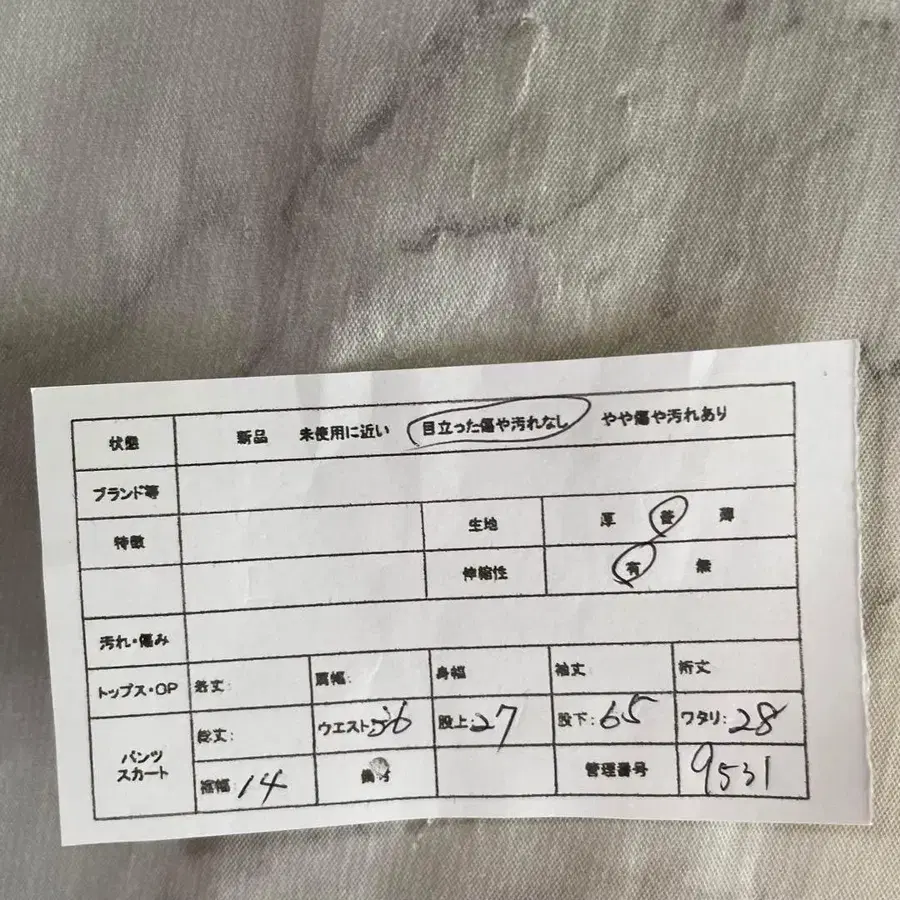 状態 新品 未使用に近い 目立った傷や汚れなし やや傷や汚れあり
ブランド等
特徴 生地 厚 普 薄
伸縮性 有 無
汚れ・傷み
トップス・OP 着丈: 肩幅: 身幅 袖丈: 裄丈
パンツ スカート 総丈: ウエスト56 股上:27 股下:65 ワタリ:28
裾幅:14 備考 管理番号 9531